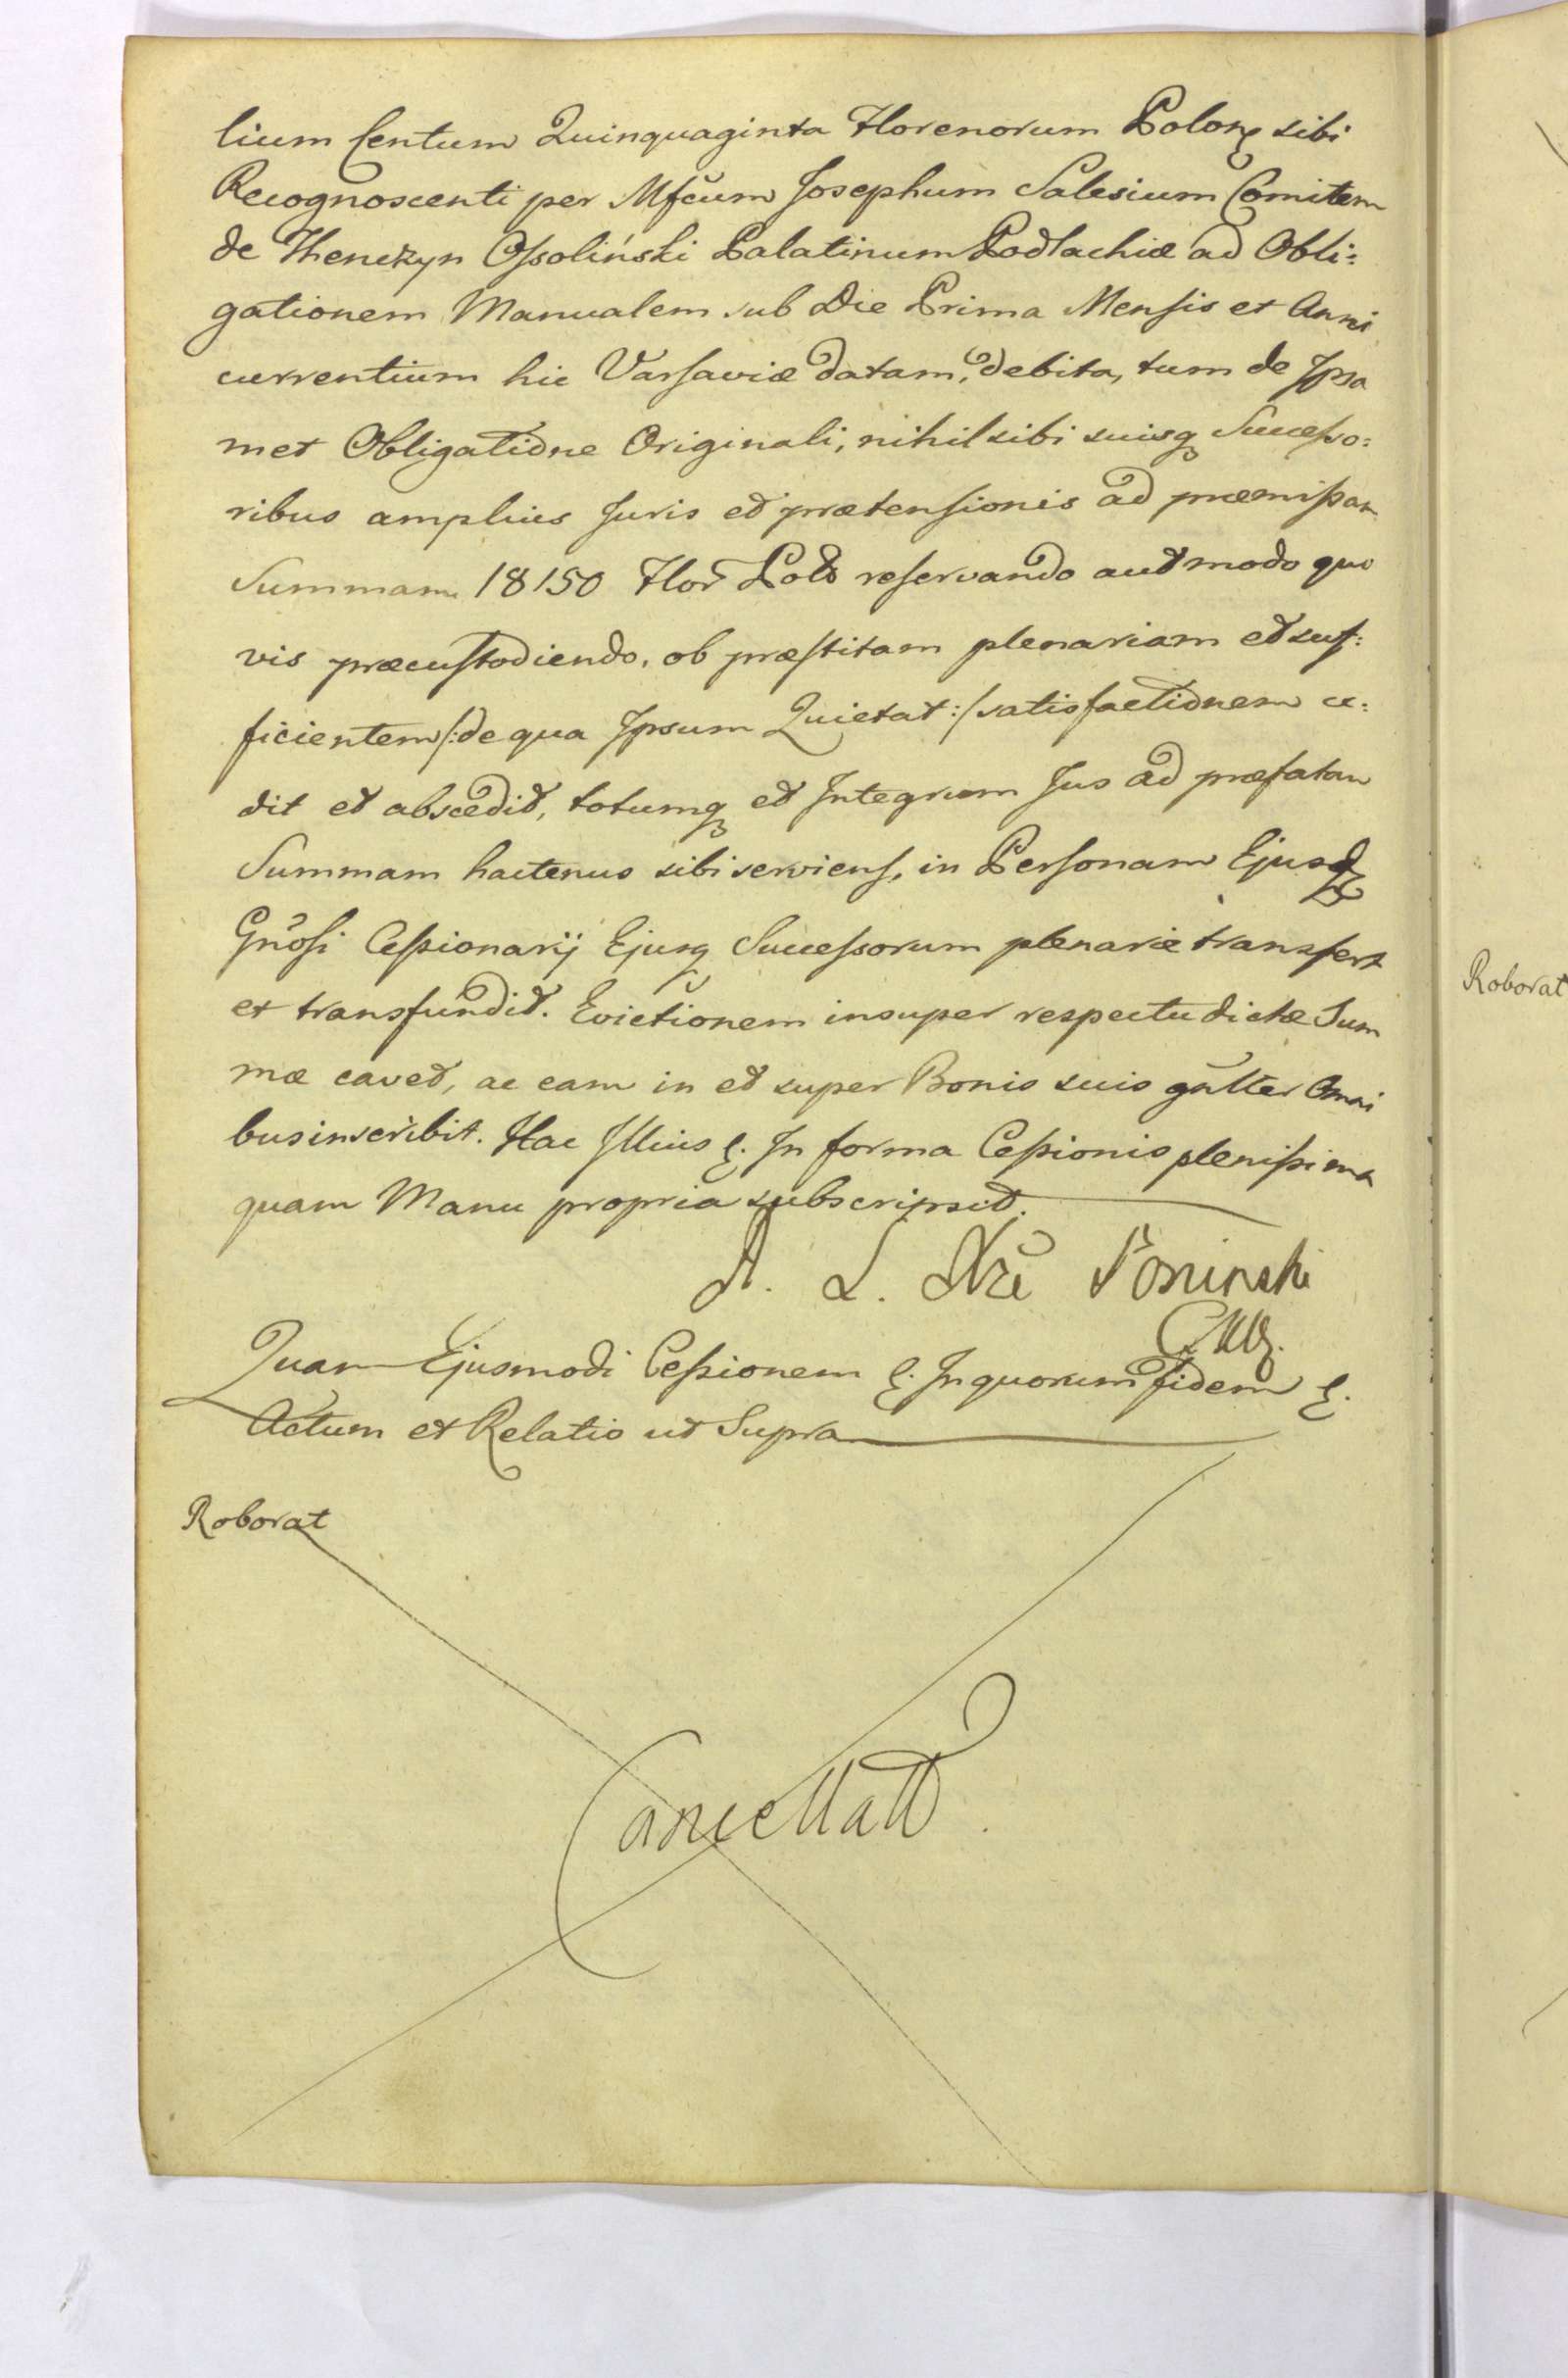 lium Centum Quinquaginta Florenorum Polon sibi
Recognoscenti per Mfcum Josephum Salesium Comitem
de Thenczyn Ossoliński Palatinum Podlachiæ ad Obli:
gationem Manualem sub Die Prima Mensis et Anni
currentium hic Varsaviæ datam, debita, tum de Ipsa
met Obligatione Originali, nihil sibi suisq Successo:
ribus amplius Juris et prætensionis ad præmissam
Summam 18150 Flor Pol reservando aut modo quo
vis præcustodiendo, ob præstitam plenariam et suf:
ficientem /: de qua Ipsum Quietat :/ satisfactionem ce:
dit et abscedit, totumq et Integrum Jus ad præfatam
Summam hactenus sibi serviens, in Personam Ejusd
Gnosi Cessionarij Ejusq Successorum plenarie transfert
et transfundit. Evictionem insuper respectu dictæ Sum
mæ cavet, ac eam in et super Bonis suis gnlter Omni
bus inscribit. Hac Illius &. In forma Cessionis plenissima
quam Manu propria subscripsit.
A. L. Xże Poninski
Quam Ejusmodi Cessionem &. In quorum fidem &.
Actum et Relatio ut Supra
Roborat
Roborat
Cancellatt.